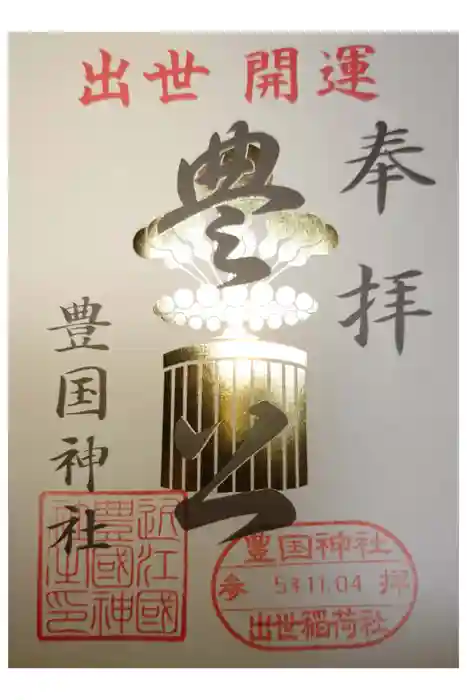 出世 開運
奉拝
豊公
豊国神社
近江國
豊國神
社之印
豊国神社
参 11.04 拝
出世稲荷社